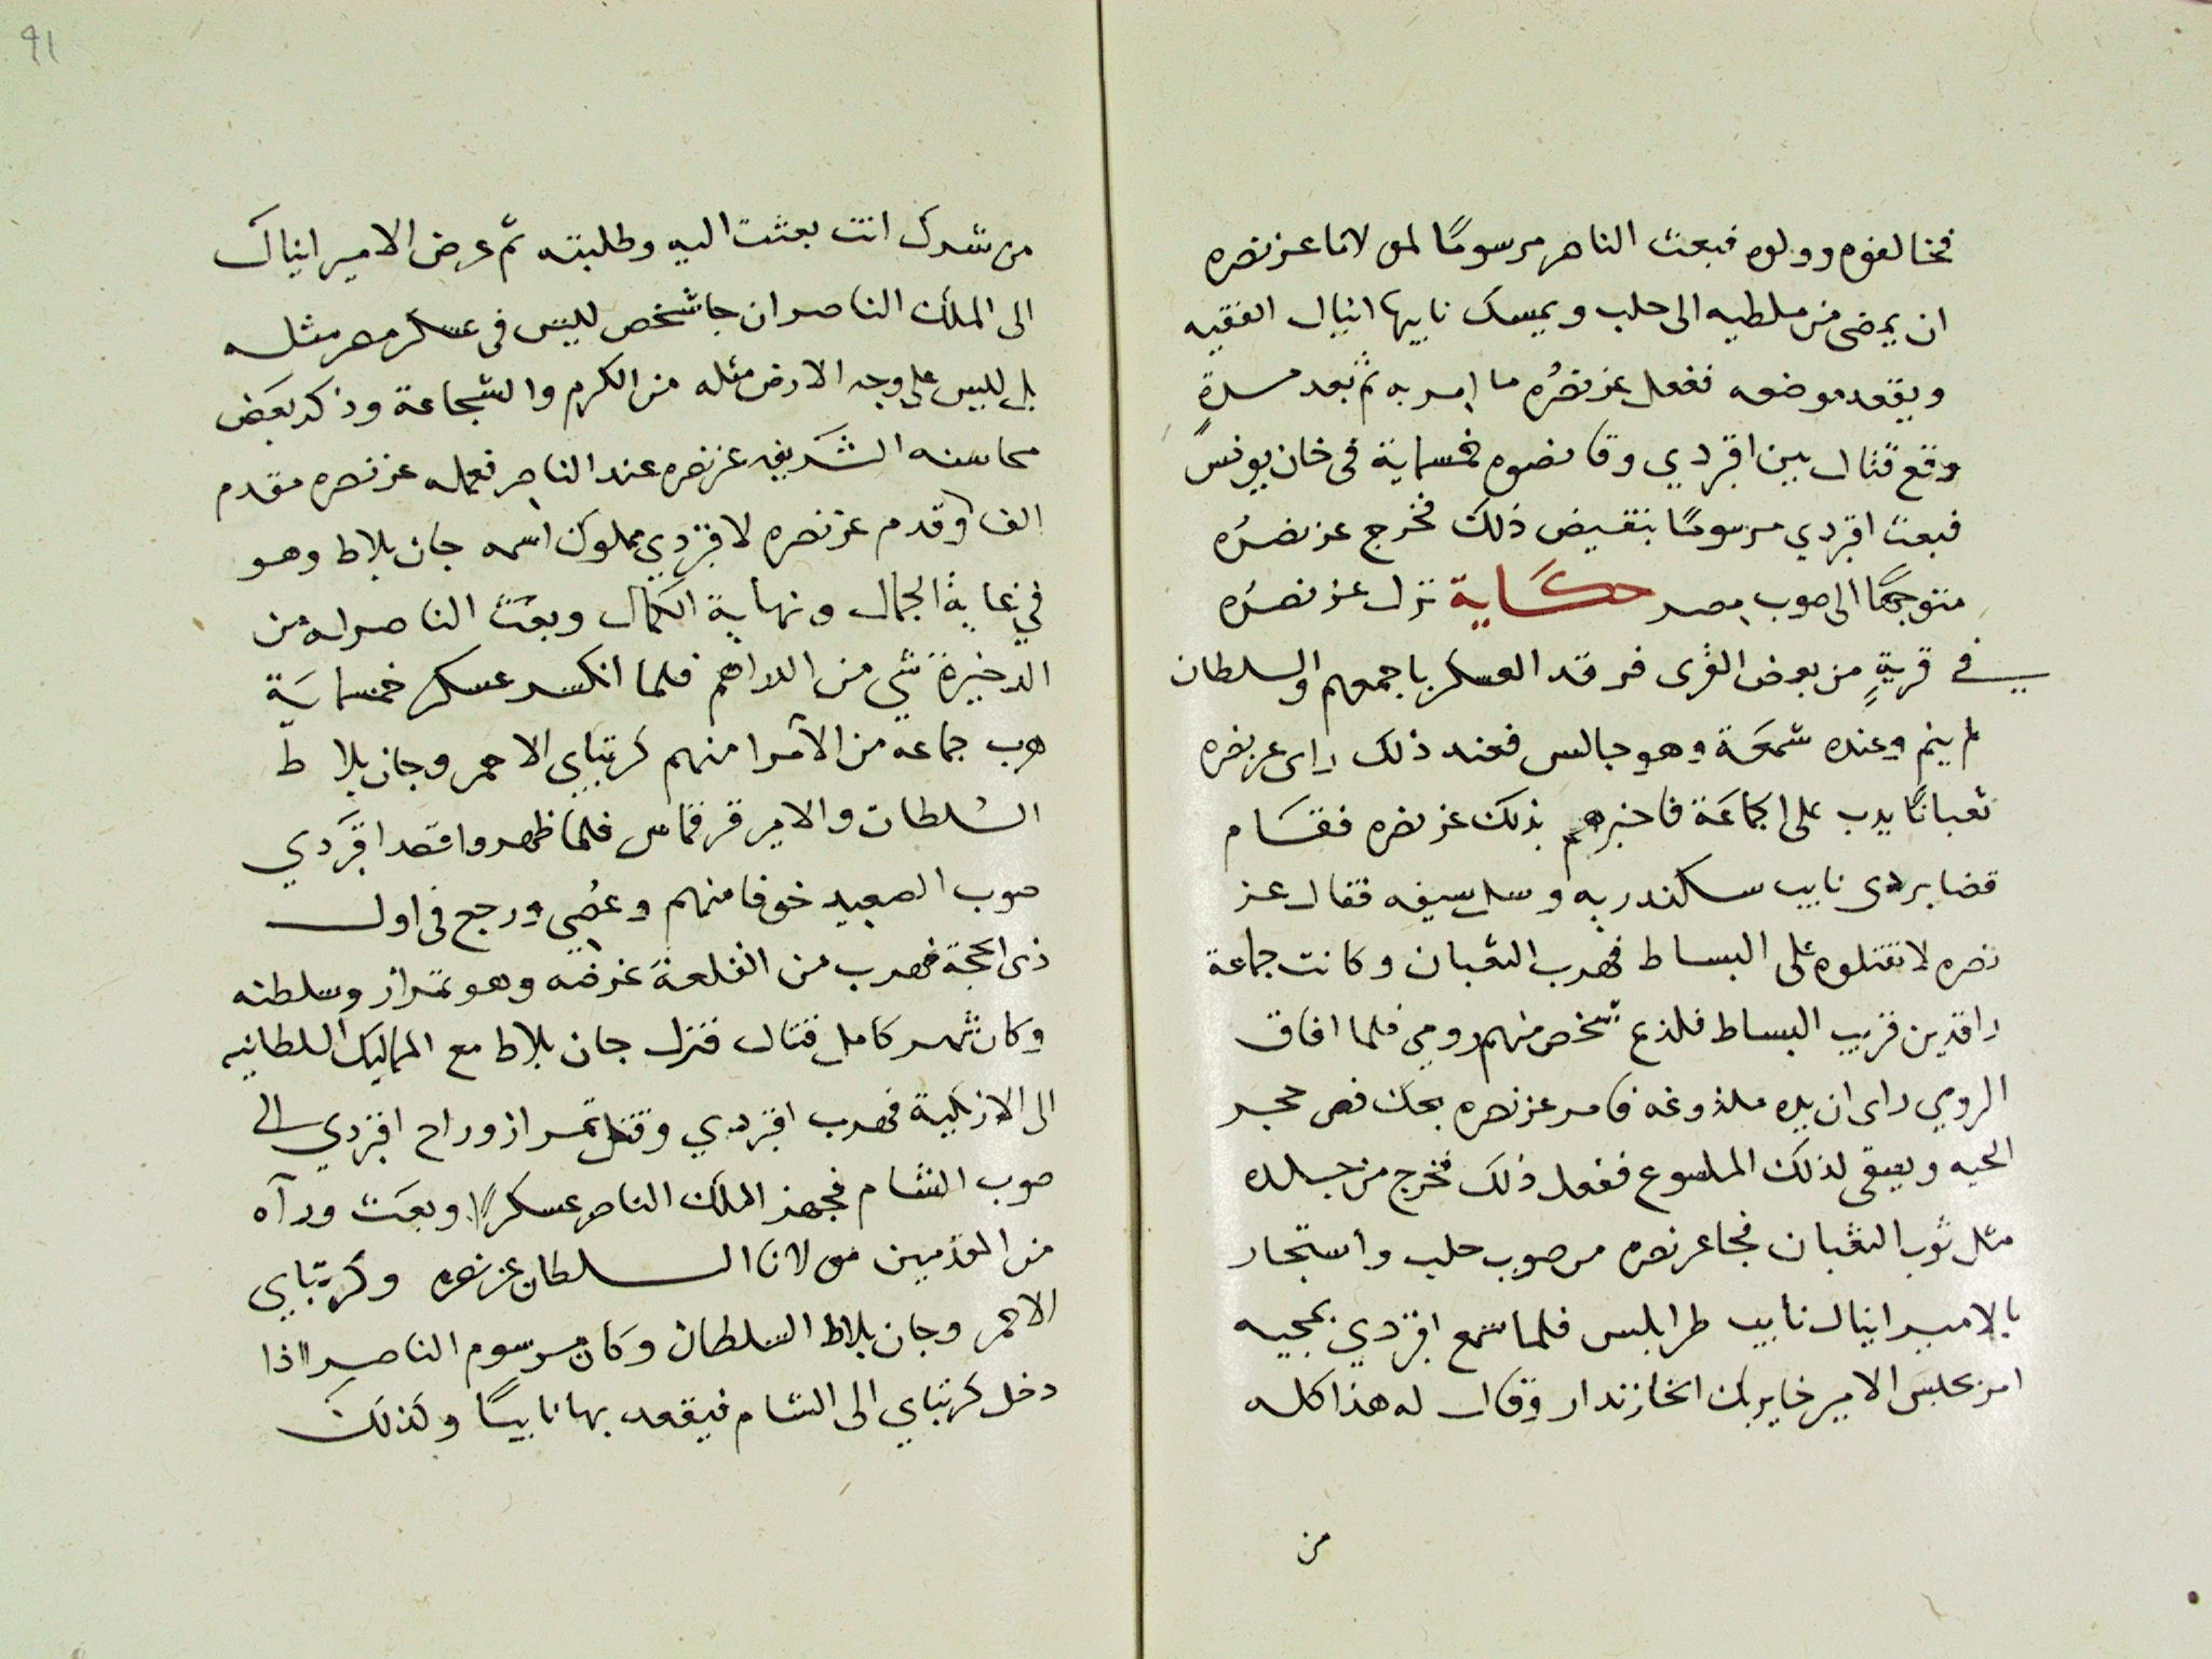 فخالفوه وولوه فبعث الناصر مرسومًا لمولانا عز نصره
ان يمضى من ملطيه الى حلب ويمسك نايبها اينال الفقيه
ويقعد موضعه ففعل عز نصرُه ما امر به ثم بعد مدةٍ
وقع قتال بين اقبردي وقانصوه خمسماية فى خان يونس
فبعث اقبردي مرسومًا بنقيض ذلك فخرج عز نصرُه
متوجهًا الى صوب مصر حكَاية نزل عز نصرُه
في قريةٍ من بعض القرى فرقد العسكر باجمعهم والسلطان
لم ينم وعنده شمعَة وهو جالس فعند ذلك راى عز نصره
ثعبانًا يدب على الجماعَة فاخبرهم بذلك عز نصره فقام
قضا بردى نايب سكندريه وسل سيفه فقال عز
نصره لا تقتلوه على البساط فهرب الثعبان وكانت جماعة
راقدين قريب البساط فلذع شخص منهم رومي فلما افاق
الرومي راى ان يده ملذوغه فامر عز نصره بحك فص حجر
الحيه ويسقى لذلك الملسوع ففعل ذلك فخرج من جسده
مثل ثوب الثعبان فجا عز نصره من صوب حلب واستجار
بالامير اينال نايب طرابلس فلما سمع اقبردي بمجيه
امر بحبس الامير خاير بك الخازندار وقال له هذا كله
من
من شرك انت بعثت اليه وطلبته ثم عرض الامير اينال
الى الملك الناصر ان جا شخص لليس فى عسكر مصر مثله
بل لليس على وجه الارض مثله من الكرم والشجاعة وذكر بعَض
محاسنه الشَريفه عز نصره عند الناصر فعمله عز نصره مقدم
الف وقدم عز نصره لاقبردي مملوك اسمه جان بلاط وهو
في غاية الجمال ونهاية الكمال وبعَث الناصر له من
الدخيرة شي من الدراهم فلما انكسر عسكر خمسمايَة
هرب جماعه من الامرا منهم كرتباي الاحمر وجان بلاط
السُلطان والامير قرقماس فلما ظهروا قصد اقبَردي
صوب الصعيد خوفا منهم وعُصي ورجع فى اول
ذى الحجة فهرب من القلعة غرضه وهو تمراز وسلطنه
وكان شهر كامل قتال فنزل جان بلاط مع المماليك السلطانيه
الى الازبكية فهرب اقبردي وقتل تمراز وراح اقبردي الى
صوب الشام فجهز الملك الناصر عسكرًا وبعَث ورآه
من المقدمين مولانا السلطان عز نصره وكرتباي
الاحمر وجان بلاط السلطان وكان مرسوم الناصر اذا
دخل كرتباي الى الشام فيقعد بها نايبًا وكذلك